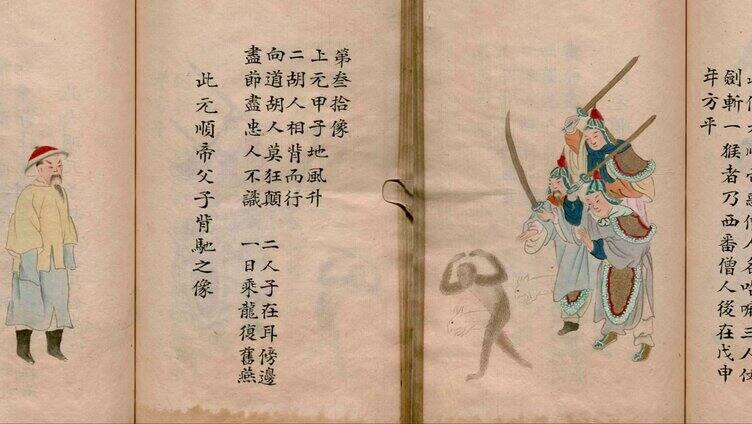 僧人名 三人仗
劍斬一猴者乃西番僧人後在戊申
年方平
第叁拾像
上元甲子地風升
二胡人相背而行
向道胡人莫狂顛 二人子在耳傍邊
盡節盡忠人不識 一日乘龍復舊燕
此元順帝父子背馳之像